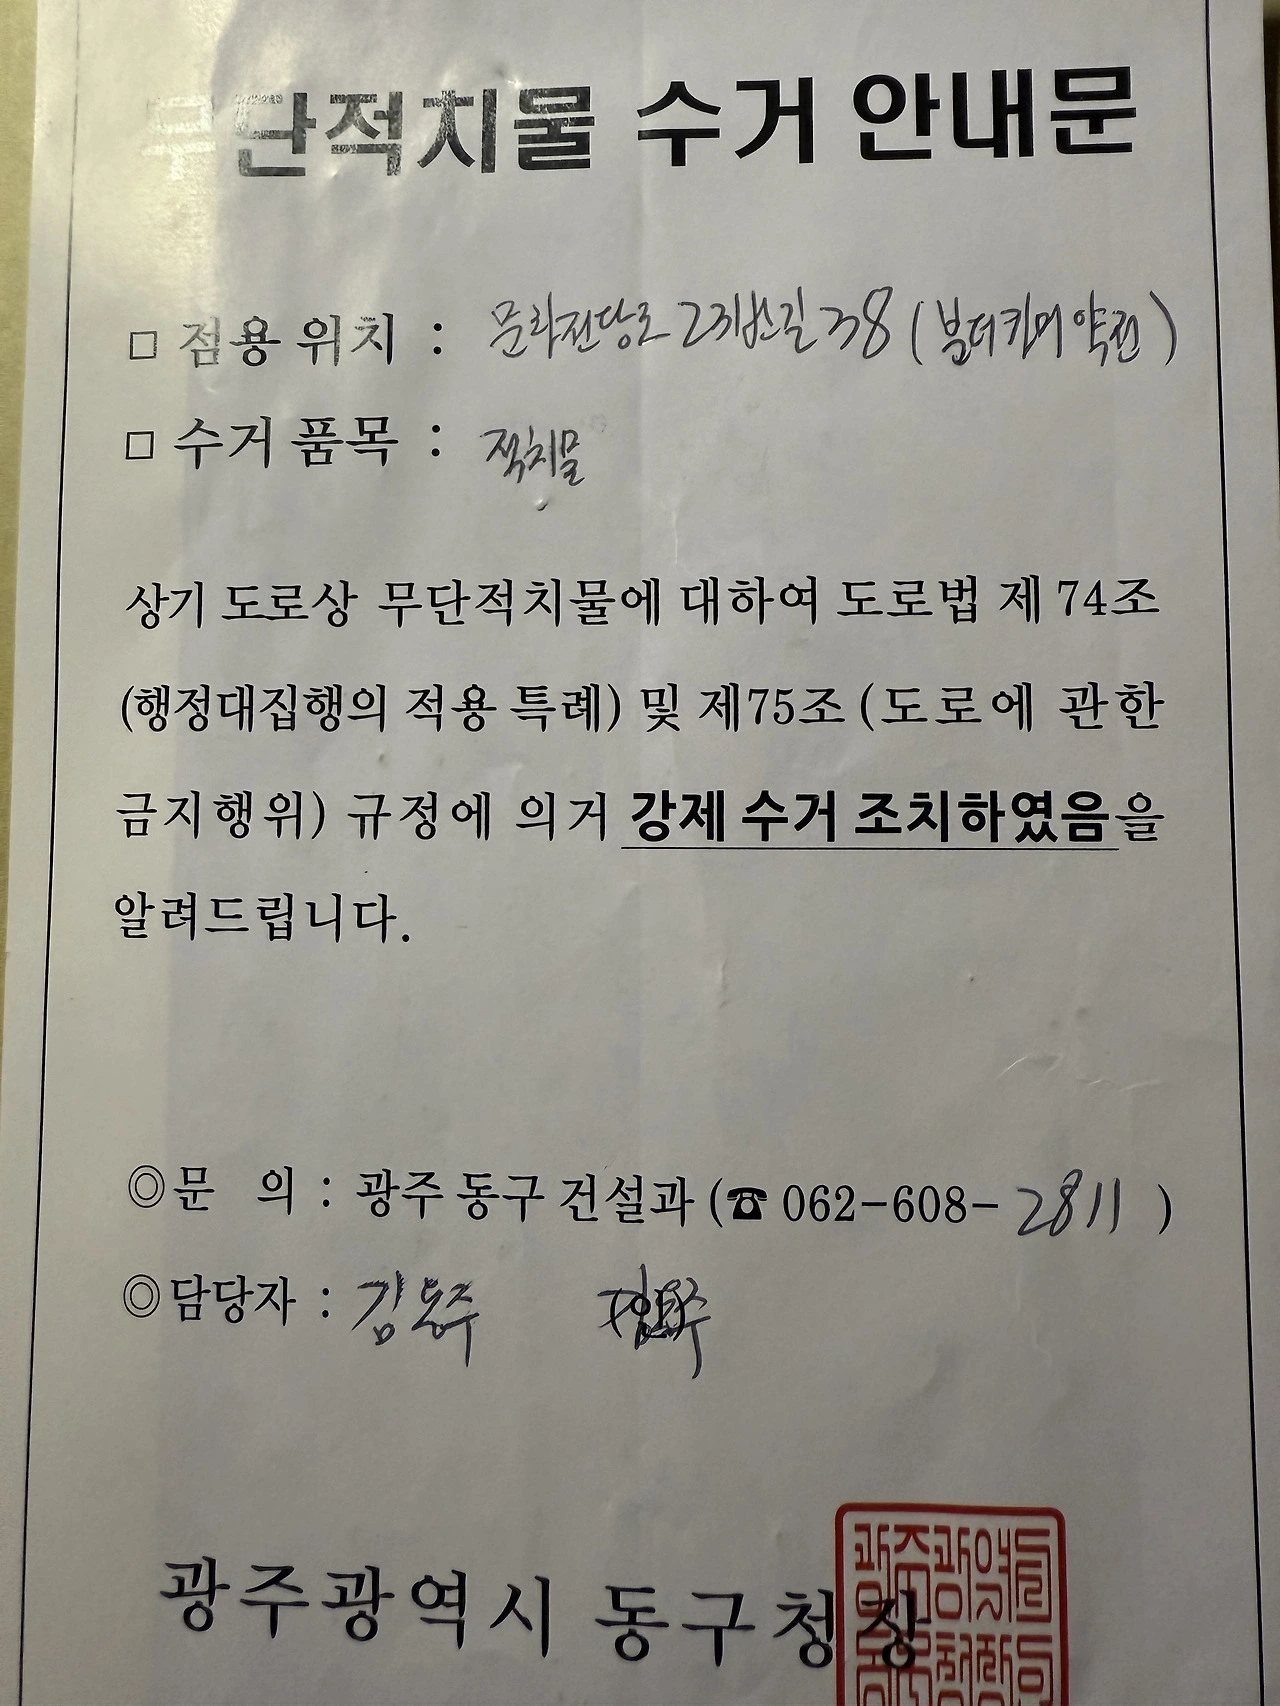 무단적치물 수거 안내문
□ 점용 위치 : 문화전당로 23번길 38 (
□ 수거 품목 : 적치물
상기 도로상 무단적치물에 대하여 도로법 제 74조
(행정대집행의 적용 특례) 및 제75조 (도로에 관한
금지행위) 규정에 의거 강제 수거 조치하였음을
알려드립니다.
◎ 문 의 : 광주 동구 건설과 (☎ 062-608-2811 )
◎ 담당자 : 김동주
광주광역시 동구청장